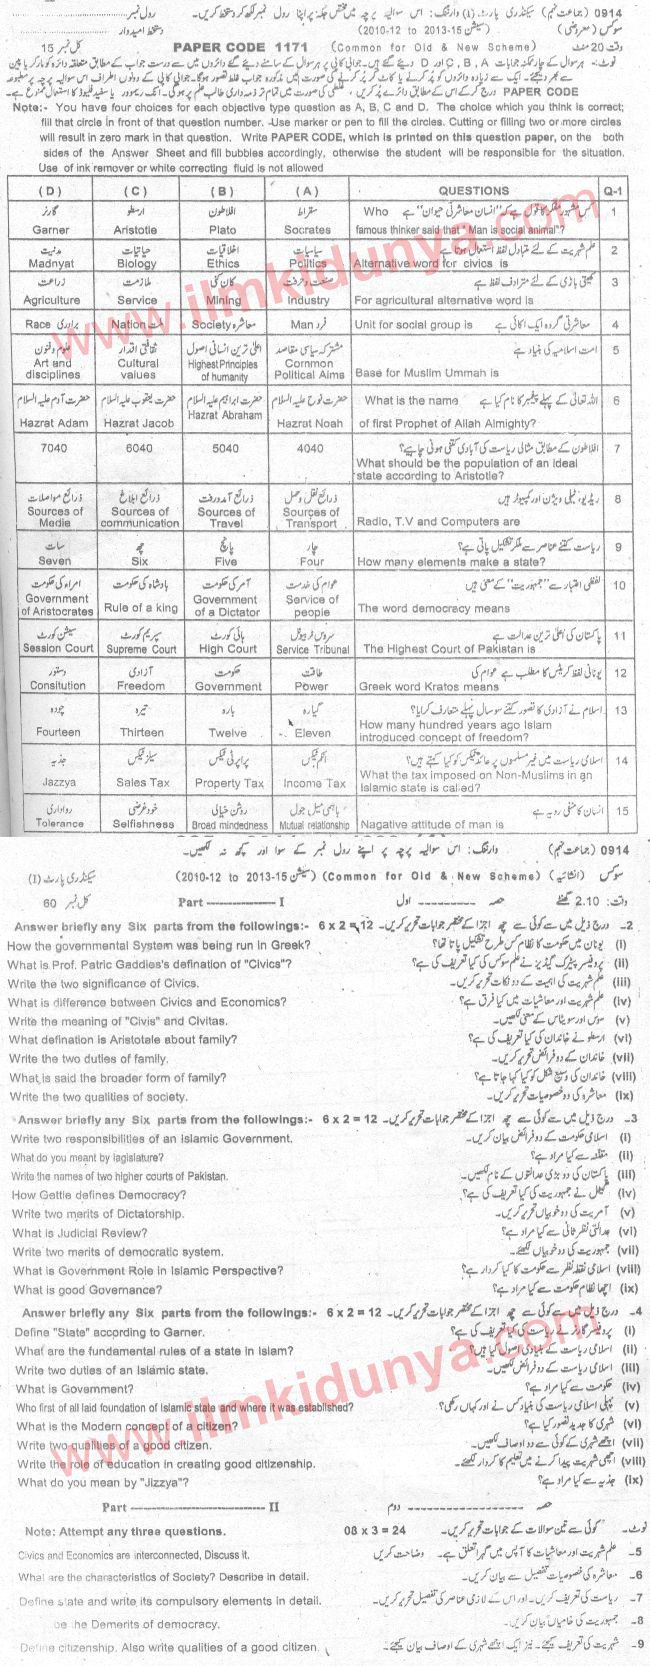 0914 (جماعت نہم) سیکنڈری پارٹ (I) وارننگ: اس سوالیہ پرچہ میں مختص جگہ پر اپنا رول نمبر لکھ کر دستخط کریں۔ رول نمبر
سوکس (معروضی) (سیشن 2013-15 to 2010-12) دستخط امیدوار
وقت 20 منٹ (Common for Old & New Scheme) PAPER CODE 1171 کل نمبر 15
Note:- You have four choices for each objective type question as A, B, C and D. The choice which you think is correct;
fill that circle in front of that question number. Use marker or pen to fill the circles. Cutting or filling two or more circles
will result in zero mark in that question. Write PAPER CODE, which is printed on this question paper, on the both
sides of the Answer Sheet and fill bubbles accordingly, otherwise the student will be responsible for the situation.
Use of ink remover or white correcting fluid is not allowed
( D ) ( C ) ( B ) ( A ) QUESTIONS Q-1
گارنر ارسطو افلاطون سقراط کس مشہور مفکر کا قول ہے کہ "انسان معاشرتی حیوان" ہے 1
Garner Aristotle Plato Socrates Who famous thinker said that "Man is social animal"?
مدنیت حیاتیات اخلاقیات سیاسیات علم شہریت کے لئے متبادل لفظ استعمال ہوتا ہے 2
Madnyat Biology Ethics Politics Alternative word for civics is
زراعت ملازمت کان کنی صنعت و حرفت کھیتی باڑی کے لئے مترادف لفظ ہے 3
Agriculture Service Mining Industry For agricultural alternative word is
Race برادری Nation ملت Society معاشرہ Man فرد Unit for social group is معاشرتی گروہ ایک اکائی ہے 4
علوم و فنون ثقافتی اقدار اعلیٰ ترین انسانی اصول مشترکہ سیاسی مقاصد امت اسلامیہ کی بنیاد ہے 5
Art and disciplines Cultural values Highest Principles of humanity Common Political Aims Base for Muslim Ummah is
حضرت آدم علیہ السلام حضرت یعقوب علیہ السلام حضرت ابراہیم علیہ السلام حضرت نوح علیہ السلام اللہ تعالیٰ کے پہلے پیغمبر کا نام کیا ہے 6
Hazrat Adam Hazrat Jacob Hazrat Abraham Hazrat Noah What is the name of first Prophet of Allah Almighty?
7040 6040 5040 4040 افلاطون کے مطابق مثالی ریاست کی آبادی کتنی ہونی چاہیے؟ 7
What should be the population of an ideal state according to Aristotle?
ذرائع مواصلات ذرائع ابلاغ ذرائع آمدورفت ذرائع نقل و حمل ریڈیو، ٹیلی ویژن اور کمپیوٹر ہیں 8
Sources of Media Sources of communication Sources of Travel Sources of Transport Radio, T.V and Computers are
سات چھ پانچ چار ریاست کتنے عناصر سے ملکر تشکیل پاتی ہے؟ 9
Seven Six Five Four How many elements make a state?
امراء کی حکومت بادشاہ کی حکومت آمر کی حکومت عوام کی خدمت لفظی اعتبار سے "جمہوریت" کے معنی ہیں 10
Government of Aristocrates Rule of a king Government of a Dictator Service of people The word democracy means
سیشن کورٹ سپریم کورٹ ہائی کورٹ سروس ٹربیونل پاکستان کی اعلیٰ ترین عدالت ہے 11
Session Court Supreme Court High Court Service Tribunal The Highest Court of Pakistan is
دستور آزادی حکومت طاقت یونانی لفظ کریٹس کا مطلب ہے عوام کی 12
Consitution Freedom Government Power Greek word Kratos means
چودہ تیرہ بارہ گیارہ اسلام نے آزادی کا تصور کتنے سو سال پہلے متعارف کرایا؟ 13
Fourteen Thirteen Twelve Eleven How many hundred years ago Islam introduced concept of freedom?
جذیہ سیلز ٹیکس پراپرٹی ٹیکس انکم ٹیکس اسلامی ریاست میں غیر مسلموں پر عائد ٹیکس کو کیا کہتے ہیں؟ 14
Jazzya Sales Tax Property Tax Income Tax What the tax imposed on Non-Muslims in an Islamic state is called?
رواداری خود غرضی روشن خیالی باہمی میل جول انسان کا منفی رویہ ہے 15
Tolerance Selfishness Broad mindedness Mutual relationship Nagative attitude of man is
0914 (جماعت نہم) وارننگ: اس سوالیہ پرچہ پر اپنے رول نمبر کے سوا اور کچھ نہ لکھیں۔ سیکنڈری پارٹ (I)
سوکس (انشائیہ) (Common for Old & New Scheme) (سیشن 2013-15 to 2010-12)
وقت: 2.10 گھنٹے حصہ ---------- اول Part ---------------- I کل نمبر 60
Answer briefly any Six parts from the followings:- 6 x 2 = 12 2۔ درج ذیل میں سے کوئی سے چھ اجزا کے مختصر جوابات تحریر کریں۔
How the governmental System was being run in Greek? (i) یونان میں حکومت کا نظام کس طرح تشکیل پاتا تھا؟
What is Prof. Patric Gaddies's defination of "Civics"? (ii) پروفیسر پیٹرک گیڈیز نے علم سوکس کی کیا تعریف کی ہے؟
Write the two significance of Civics. (iii) علم شہریت کی اہمیت کے دو نکات تحریر کریں۔
What is difference between Civics and Economics? (iv) علم شہریت اور معاشیات میں کیا فرق ہے؟
Write the meaning of "Civis" and Civitas. (v) سوس اور سویٹاس کے معنی لکھیں۔
What defination is Aristotale about family? (vi) ارسطو نے خاندان کی کیا تعریف کی ہے؟
Write the two duties of family. (vii) خاندان کے دو فرائض تحریر کریں۔
What is said the broader form of family? (viii) خاندان کی وسیع شکل کو کیا کہا جاتا ہے؟
Write the two qualities of society. (ix) معاشرہ کی دو خصوصیات تحریر کریں۔
Answer briefly any Six parts from the followings:- 6 x 2 = 12 3۔ درج ذیل میں سے کوئی سے چھ اجزا کے مختصر جوابات تحریر کریں۔
Write two responsibilities of an Islamic Government. (i) اسلامی حکومت کے دو فرائض بیان کریں۔
What do you meant by lagislature? (ii) مقننہ سے کیا مراد ہے؟
Write the names of two higher courts of Pakistan. (iii) پاکستان کی دو بڑی عدالتوں کے نام لکھیں۔
How Gettle defines Democracy? (iv) گیٹل نے جمہوریت کی کیا تعریف کی ہے؟
Write two merits of Dictatorship. (v) آمریت کی دو خوبیاں تحریر کریں۔
What is Judicial Review? (vi) عدالتی نظر ثانی سے کیا مراد ہے؟
Write two merits of democratic system. (vii) جمہوریت کی دو خوبیاں لکھئے۔
What is Government Role in Islamic Perspective? (viii) اسلامی نقطہ نظر سے حکومت کا کیا کردار ہے؟
What is good Governance? (ix) اچھا نظام حکومت سے کیا مراد ہے؟
Answer briefly any Six parts from the followings:- 6 x 2 = 12 4۔ درج ذیل میں سے کوئی سے چھ اجزا کے مختصر جوابات تحریر کریں۔
Define "State" according to Garner. (i) پروفیسر گارنر نے ریاست کی کیا تعریف کی ہے؟
What are the fundamental rules of a state in Islam? (ii) اسلامی ریاست کے بنیادی اصول کیا ہیں؟
Write two duties of an Islamic state. (iii) اسلامی ریاست کے دو فرائض لکھیں۔
What is Government? (iv) حکومت سے کیا مراد ہے؟
Who first of all laid foundation of Islamic state and where it was established? (v) پہلی اسلامی ریاست کی بنیاد کس نے اور کہاں رکھی؟
What is the Modern concept of a citizen? (vi) شہری کا جدید تصور کیا ہے؟
Write two qualities of a good citizen. (vii) اچھے شہری کے کوئی سے دو اوصاف لکھیں۔
Write the role of education in creating good citizenship. (viii) اچھی شہریت پیدا کرنے میں تعلیم کا کردار لکھئے۔
What do you mean by "Jizzya"? (ix) جذیہ سے کیا مراد ہے؟
Part ---------------- II حصہ ---------- دوم
Note: Attempt any three questions. 08 x 3 = 24 نوٹ۔ کوئی سے تین سوالات کے جوابات تحریر کریں۔
Civics and Economics are interconnected, Discuss it. 5۔ علم شہریت اور معاشیات کا آپس میں گہرا تعلق ہے۔ وضاحت کریں
What are the characteristics of Society? Describe in detail. 6۔ معاشرہ کی خصوصیات تفصیل سے بیان کریں۔
Define state and write its compulsory elements in detail. 7۔ ریاست کی تعریف کریں۔ اور اس کے لازمی عناصر کی تفصیل تحریر کریں۔
be the Demerits of democracy. 8۔ جمہوریت کی خامیاں بیان کریں۔
Define citizenship. Also write qualities of a good citizen. 9۔ شہریت کی تعریف کیجئے۔ نیز ایک اچھے شہری کے اوصاف بیان کیجئے۔
www.ilmkidunya.com
www.ilmkidunya.com